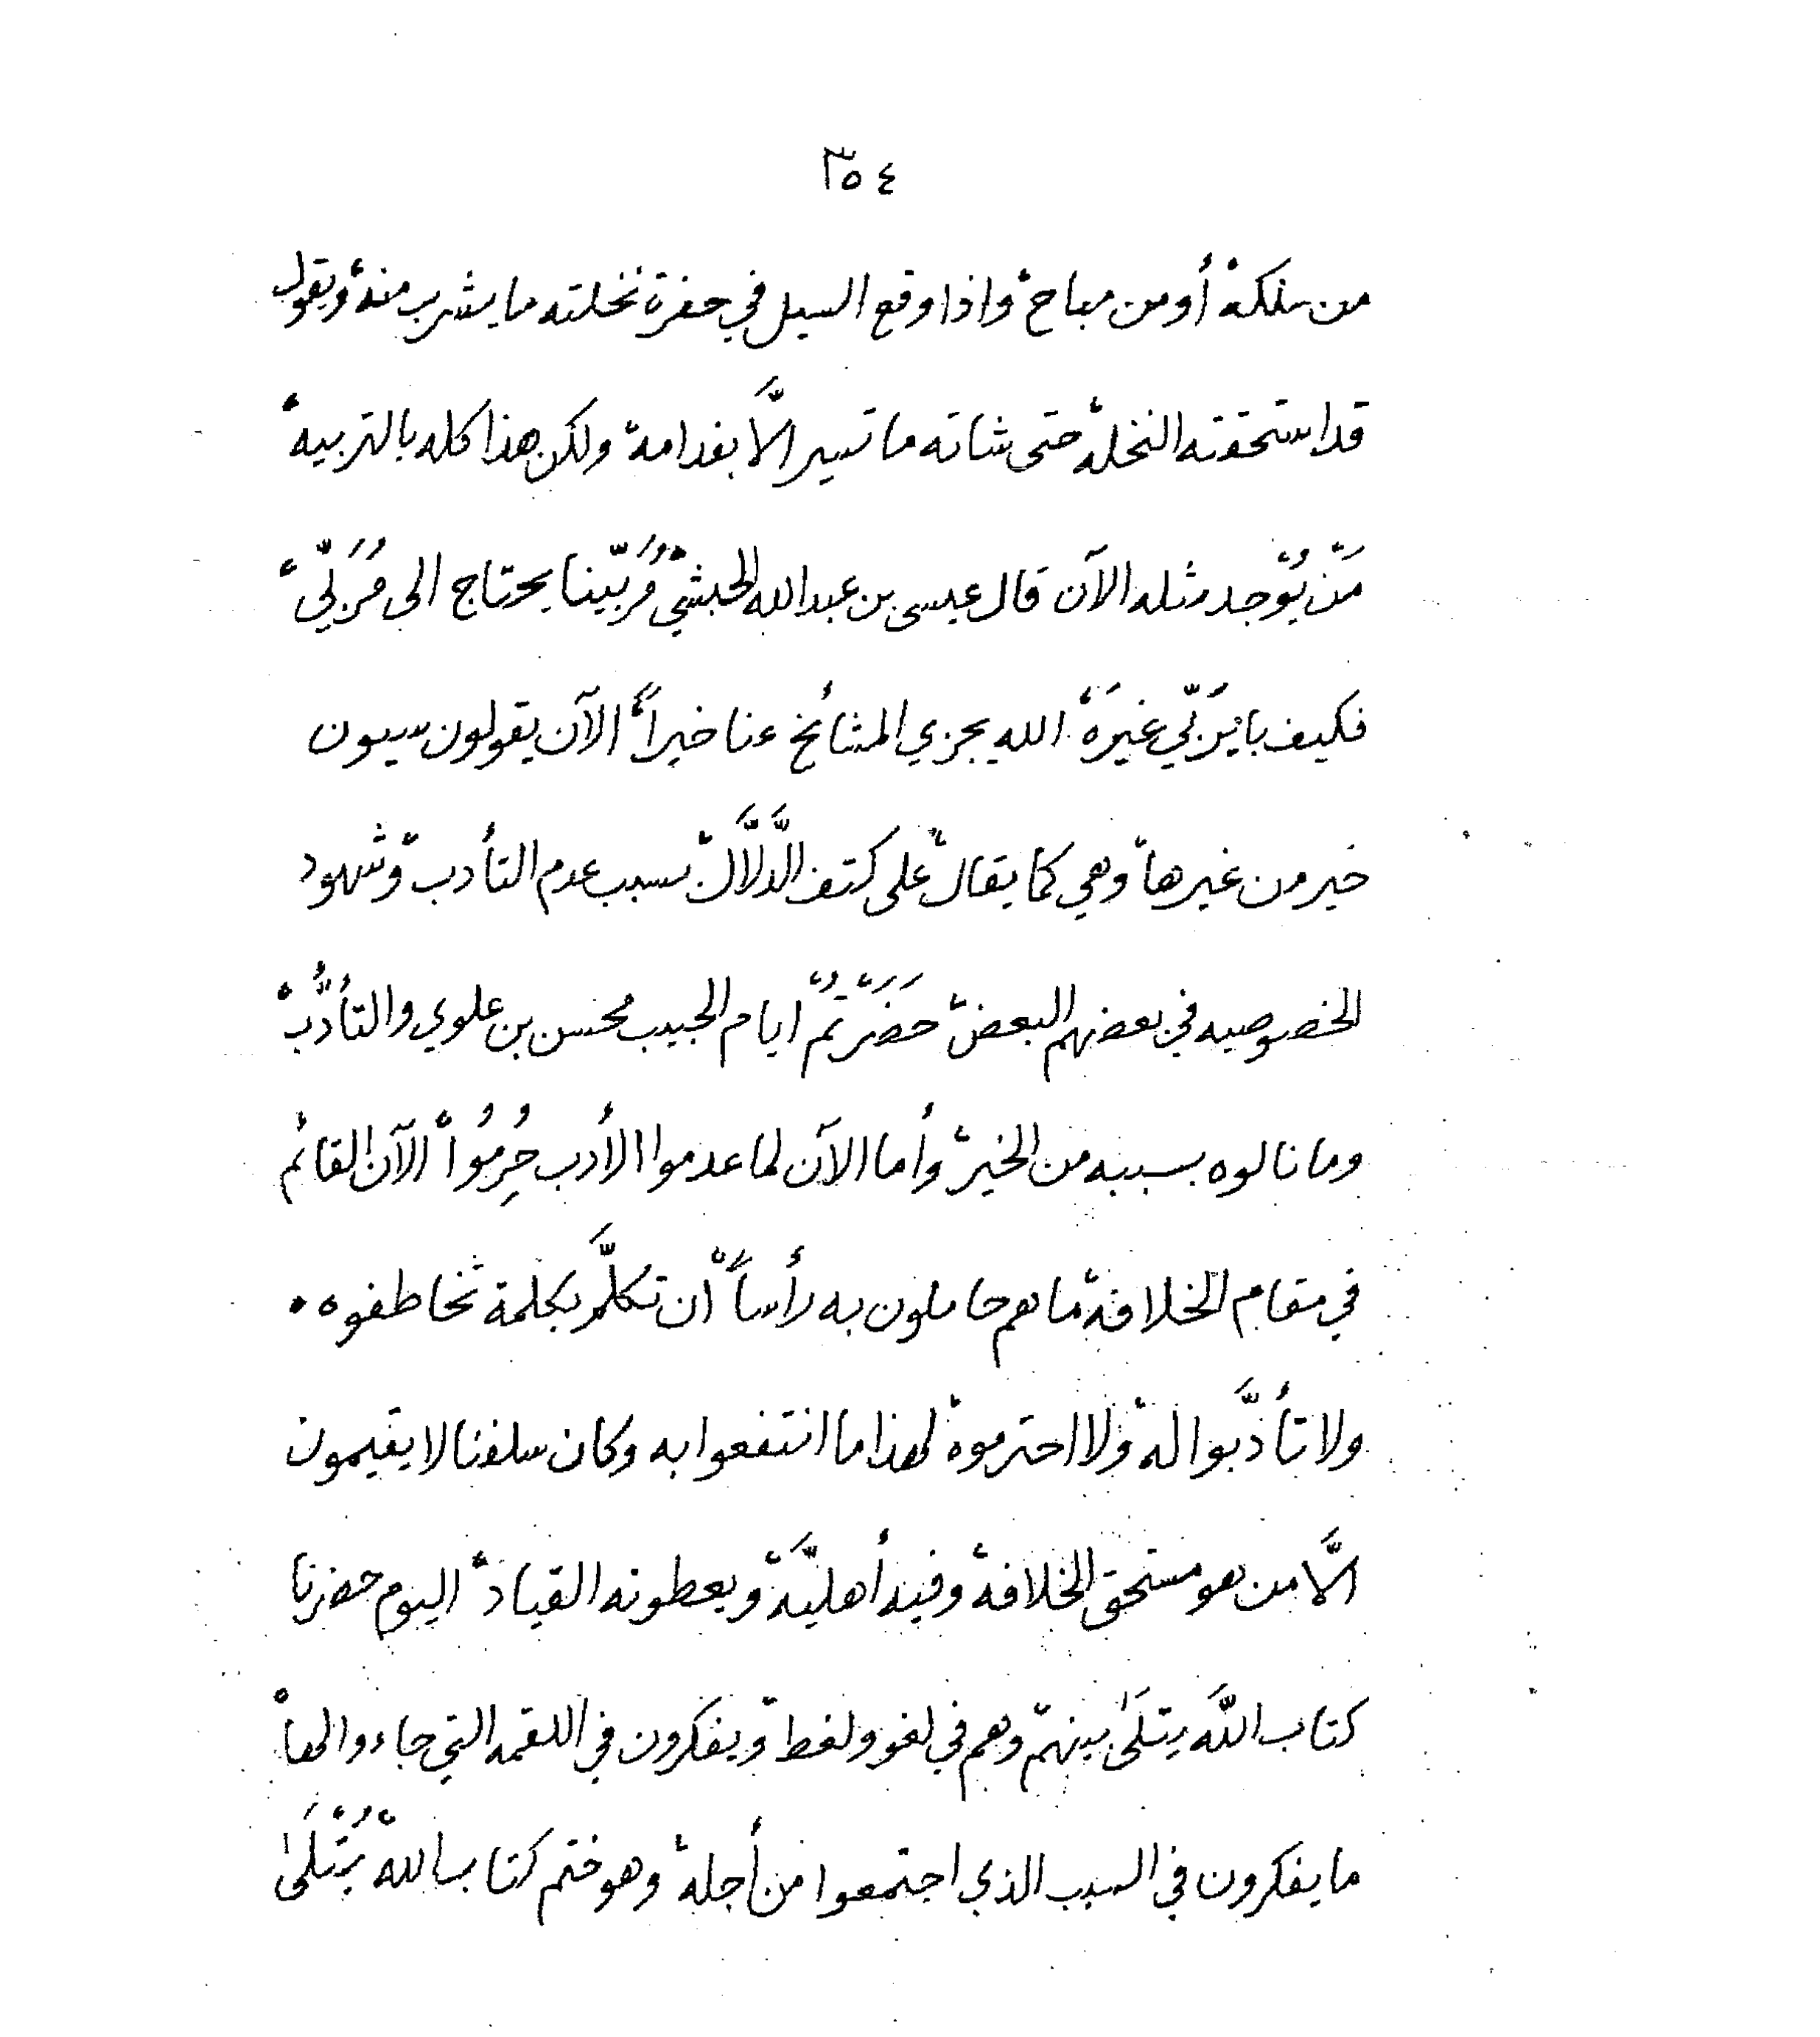 ٣٥٤
من ملكه، أو من مباح، واذا وقع السيل في حفرة نخلته ما يشرب منه، ويقول
قد استحقته النخله، حتى شاته ما تسير الَّا بفدامه، ولكن هذا كله بالتربيه،
مَنْ يُوْجد مثله الآن قال عيسى بن عبدالله الحبشي، مُرَبّينا يحتاج الى مُرَبّي،
فكيف با يُرَبّي غيرَه، الله يجزي المشائخ عنا خيراً، الآن يقولون سيون
خير من غيرها، وهي كما يقال، على كتف الدَّلَّال، بسبب عدم التأدب، وشهود
الخصوصيه في بعضهم البعض، حَضَرْتُمْ ايام الحبيب محسن بن علوي والتأدُّب،
وما نالوه بسببه من الخير، وأما الآن لما عدموا الأدب حُرِمُوا، الآن القائم
في مقام الخلافه، ما هم حاملون به رأساً، ان تكلَّم بكلمة تخاطفوه،
ولا تأدَّبوا له، ولا احترموه، لهذا ما انتفعوا به وكان سلفنا لا يقيمون
الَّا من هو مستحق الخلافه، وفيه أهليَّه، ويعطونه القياد، اليوم حضرنا
كتاب اللَّه يتلَى بينهم، وهم في لغو ولغط، ويفكرون في اللقمه التي جاءوا لها،
ما يفكرون في السبب الذي اجتمعوا من أجله، وهو ختم كتاب الله، يُتْلَى